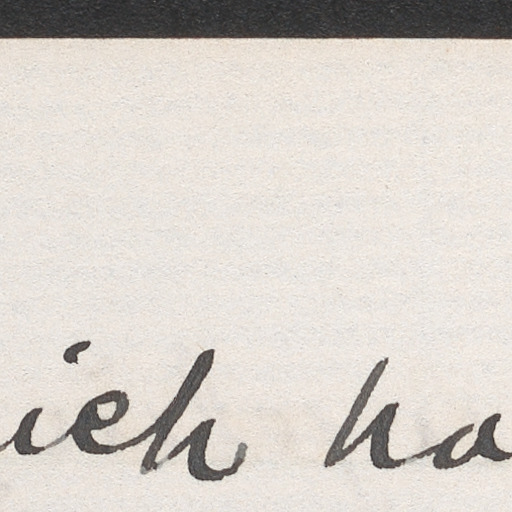 ich ha